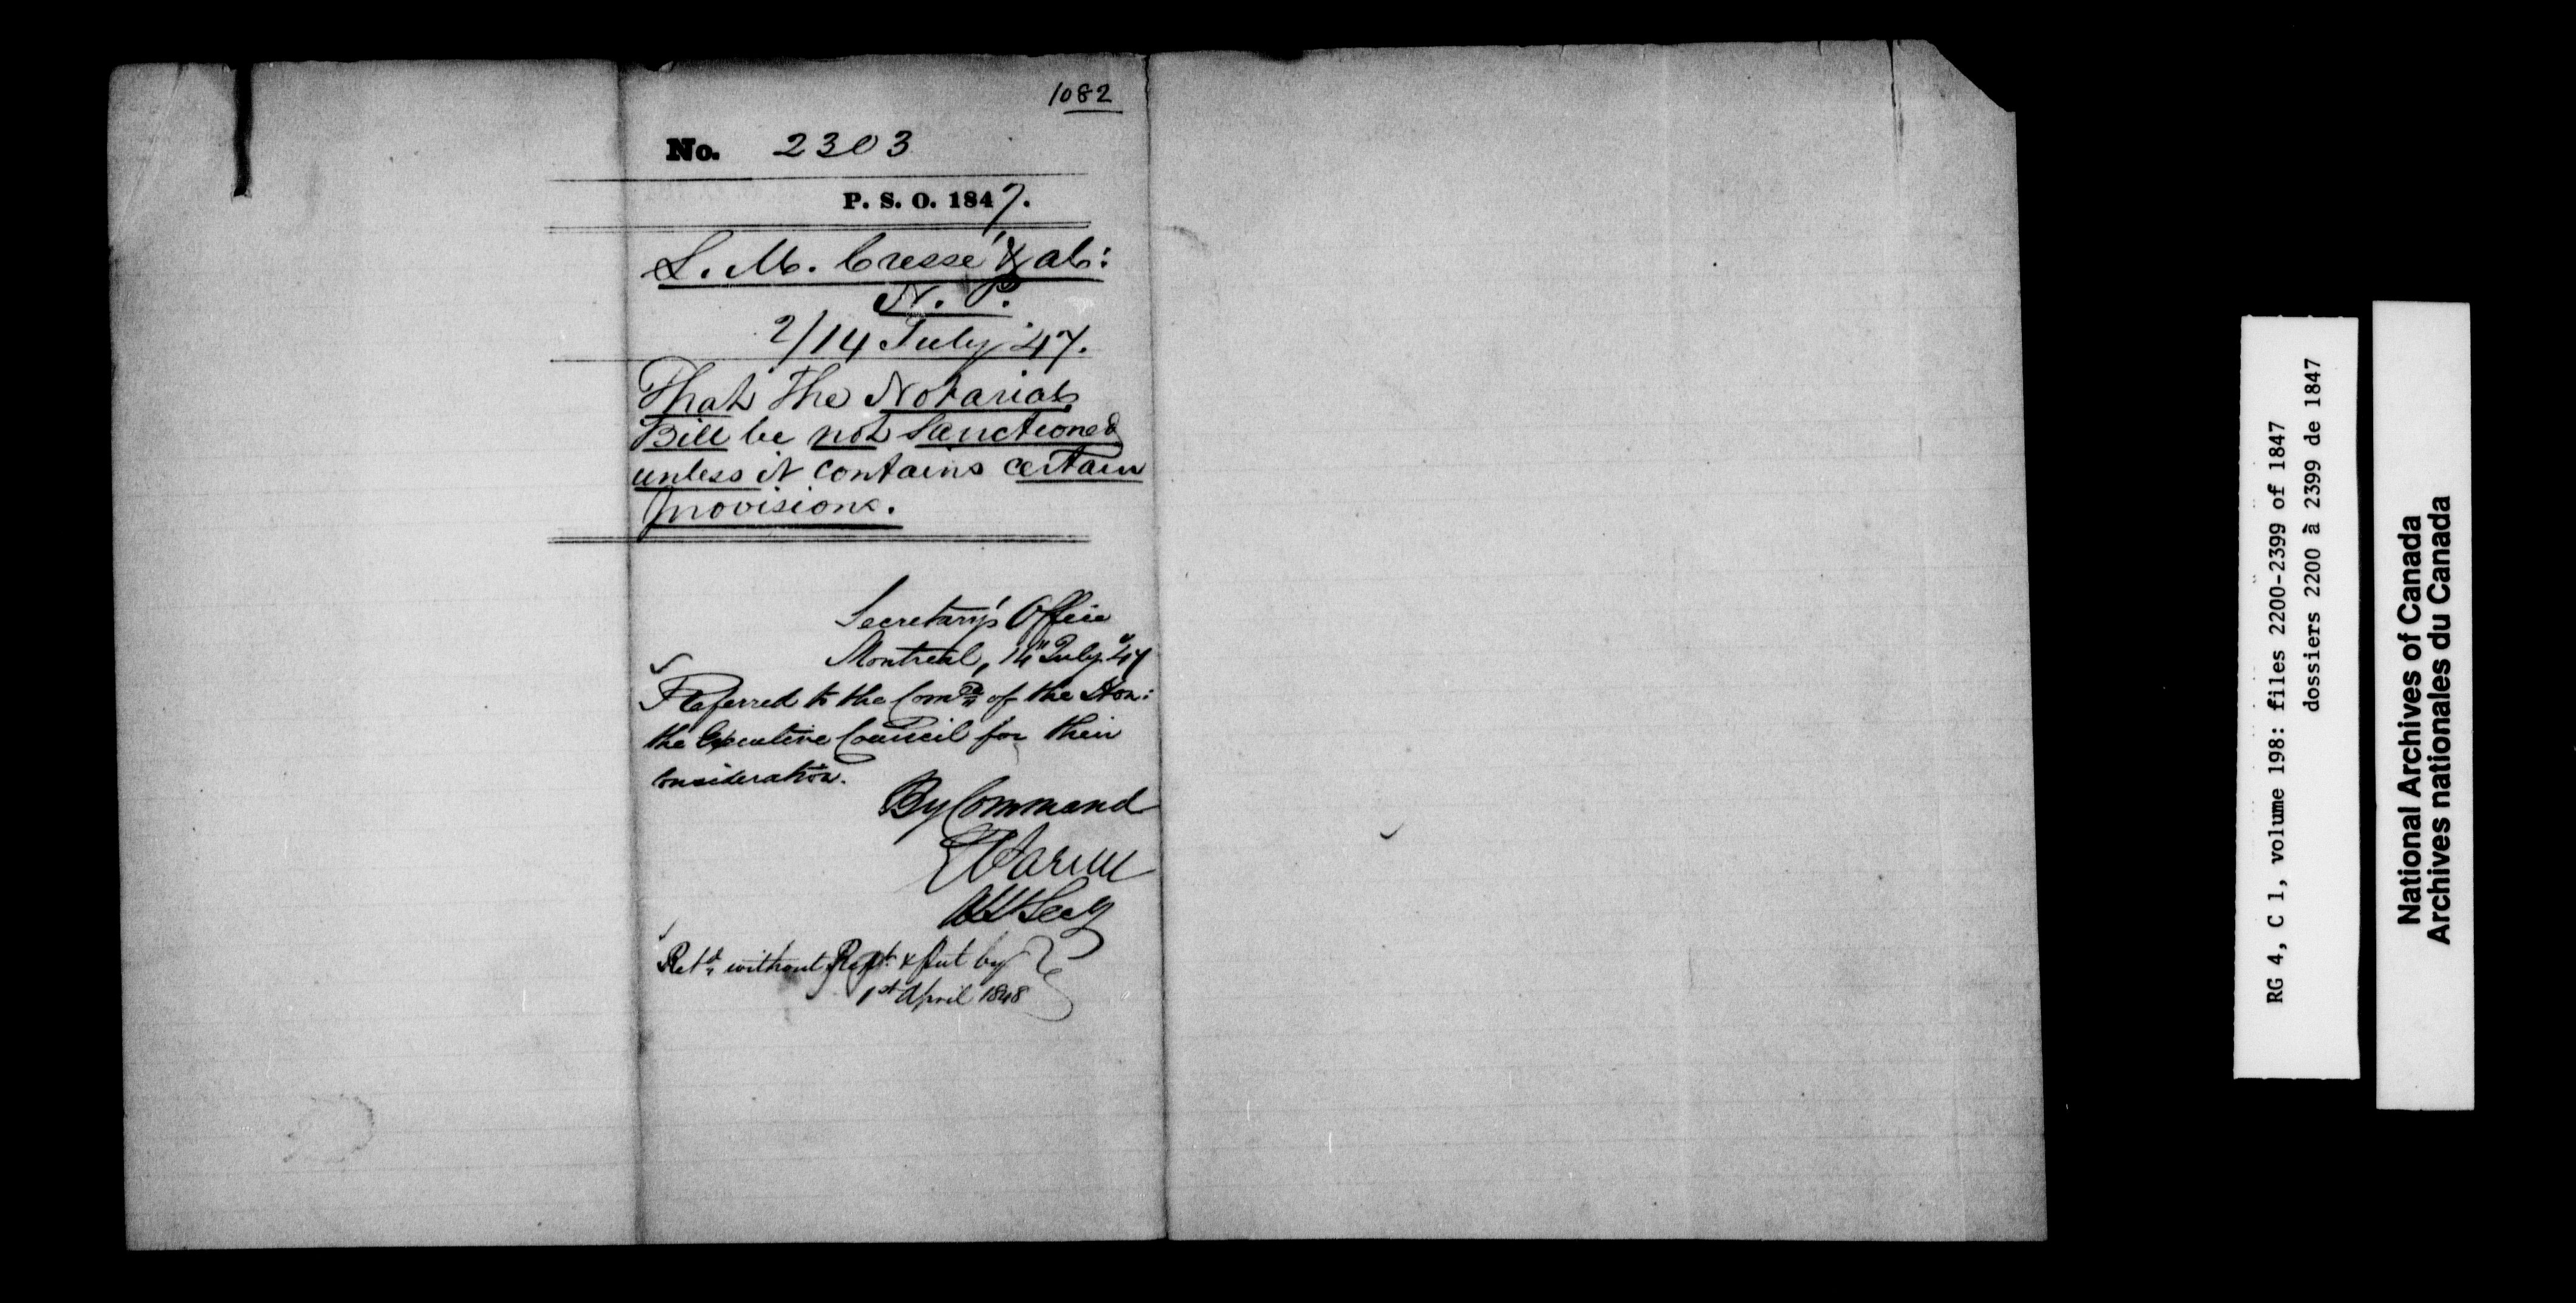 1082
No. 2303
P. S. O. 1847.
L. M. Cressé & al:
N. P.
2/14 July '47.
That the Notarial
Bill be not Sanctioned
unless it contains certain
provisions.
Secretary's Office
Montreal, 14" July '47
Referred to the Comee of the Hon:
the Executive Council for their
consideration.
By Command
E Parent
Asst Secy
Retd without Rept & put by
1st April 1848
RG 4, C 1, volume 198: files 2200-2399 of 1847
dossiers 2200 à 2399 de 1847
National Archives of Canada
Archives nationales du Canada